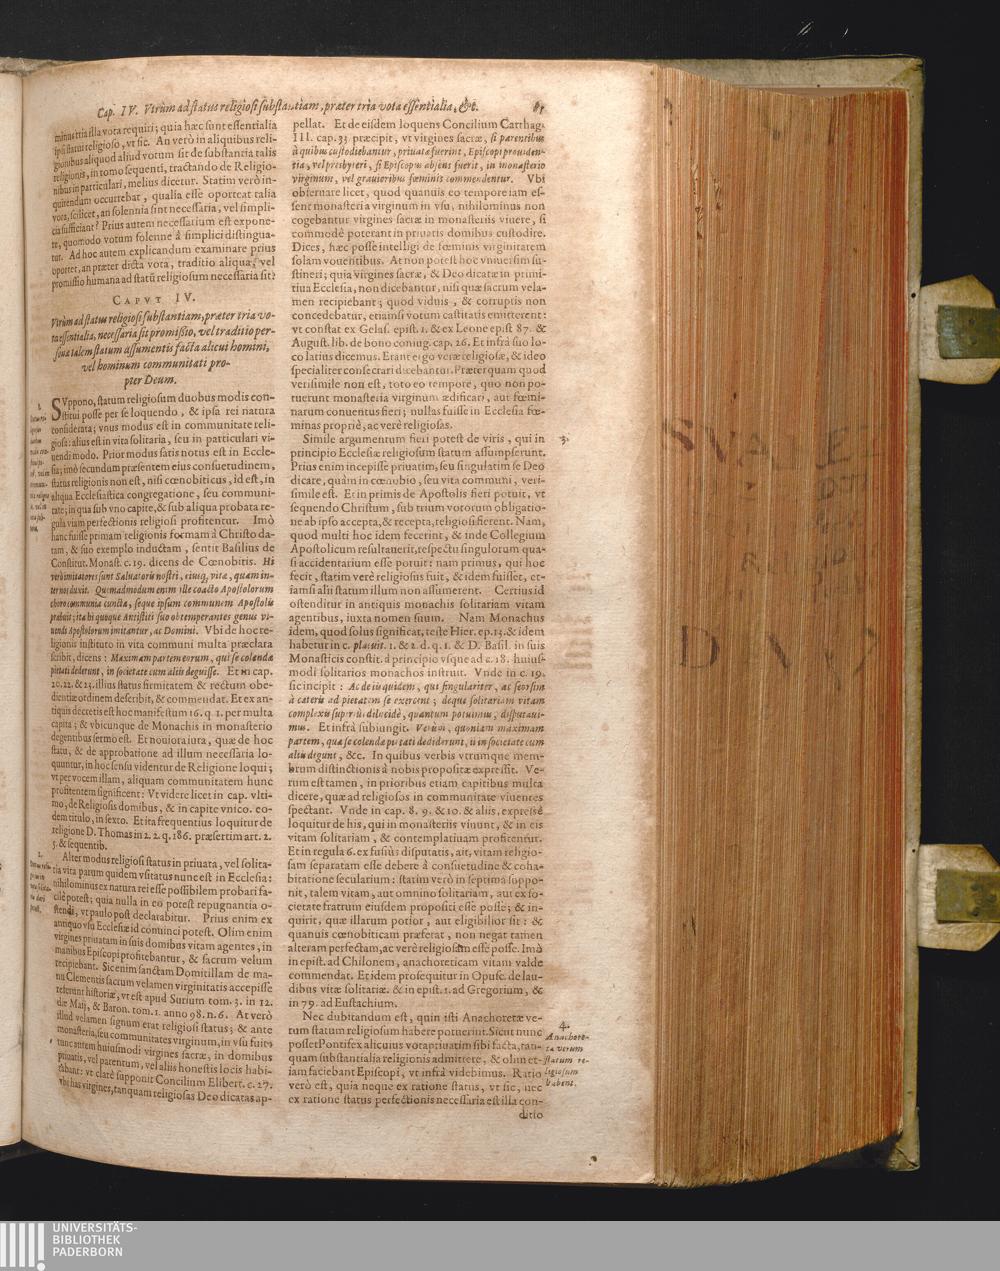 Cap. IV. Vtrùm ad statum religiosi substantiam, præter tria vota essentialia, &c.
minus tria illa vota requiri; quia hæc sunt essentialia
ipsi statui religioso, vt sic. An verò in aliquibus reli-
gionibus aliquod aliud votum sit de substantia talis
religionis, in tomo sequenti, tractando de Religio-
nibus in particulari, melius dicetur. Statim verò in-
quirendum occurrebat, qualia esse oporteat talia
vota, scilicet, an solennia sint necessaria, vel simpli-
cia sufficiant? Prius autem necessarium est expone-
re, quomodo votum solenne à simplici distingua-
tur. Ad hoc autem explicandum examinare prius
oportet, an præter dicta vota, traditio aliqua, vel
promissio humana ad statũ religiosum necessaria sit?
CAPVT IV.
Vtrùm ad status religiosi substantiam, præter tria vo-
ta essentialia, necessaria sit promissio, vel traditio per-
sonæ talem statum assumentis facta alicui homini,
vel hominum communitati pro-
pter Deum.
SVppono, statum religiosum duobus modis con-
stitui posse per se loquendo, & ipsa rei natura
considerata; vnus modus est in communitate reli-
giosa: alius est in vita solitaria, seu in particulari vi-
uendi modo. Prior modus satis notus est in Eccle-
sia; imò secundum præsentem eius consuetudinem,
status religionis non est, nisi cœnobiticus, id est, in
aliqua Ecclesiastica congregatione, seu communi-
tate; in qua sub vno capite, & sub aliqua probata re-
gula viam perfectionis religiosi profitentur. Imò
hanc fuisse primam religionis formam à Christo da-
tam, & suo exemplo inductam, sentit Basilius de
Constitut. Monast. c. 19. dicens de Cœnobitis. Hi
verò imitatores sunt Saluatoris nostri, eiusq, vitæ, quam in-
ter nos duxit. Quemadmodum enim ille coacto Apostolorum
choro communia cuncta, seque ipsum communem Apostolis
præbuit; ita hi quoque Antistiti suo obtemperantes genus vi-
uendi Apostolorum imitantur, ac Domini. Vbi de hoc re-
ligionis instituto in vita communi multa præclara
scribit, dicens: Maximam partem eorum, qui se colenda
pietati dederunt, in societate cum aliis deguisse. Et in cap.
20. 22. & 23. illius status firmitatem & rectum obe-
dientiæ ordinem describit, & commendat. Et ex an-
tiquis decretis est hoc manifestum 16. q. 1. per multa
capita; & vbicunque de Monachis in monasterio
degentibus sermo est. Et nouiora iura, quæ de hoc
statu, & de approbatione ad illum necessaria lo-
quuntur, in hoc sensu videntur de Religione loqui;
vt per vocem illam, aliquam communitatem hunc
profitentem significent: Vt videre licet in cap. vlti-
mo, de Religiosis domibus, & in capite vnico. eo-
dem titulo, in sexto. Et ita frequentius loquitur de
religione D. Thomas in 2. 2. q. 186. præsertim art. 2.
5. & sequentib.
Alter modus religiosi status in priuata, vel solita-
ria vita parum quidem vsitatus nunc est in Ecclesia:
nihilominus ex natura rei esse possibilem probari fa-
cilè potest; quia nulla in eo potest repugnantia o-
stendi, vt paulo post declarabitur. Prius enim ex
antiquo vsu Ecclesiæ id conuinci potest. Olim enim
virgines priuatam in suis domibus vitam agentes, in
manibus Episcopi profitebantur, & sacrum velum
recipiebant. Sic enim sanctam Domitillam de ma-
nu Clementis sacrum velamen virginitatis accepisse
referunt historiæ, vt est apud Surium tom. 3. in 12.
die Maij, & Baron. tom. 1. anno 98. n. 6. At verò
illud velamen signum erat religiosi status; & ante
monasteria, seu communitates virginum, in vsu fuit,
tunc autem huiusmodi virgines sacræ, in domibus
priuatis, vel parentum, vel aliis honestis locis habi-
tabant: vt clarè supponit Concilium Elibert. c. 27.
vbi has virgines, tanquam religiosas Deo dicatas ap-
pellat. Et de eisdem loquens Concilium Carthag.
III. cap. 33. præcipit, vt virgines sacræ, si parentibus
à quibus custodiebantur, priuatæ fuerint, Episcopi prouiden-
tia, vel presbyteri, si Episcopus absens fuerit, in monasterio
virginum, vel grauioribus fœminis commendentur. Vbi
obseruare licet, quod quanuis eo tempore iam es-
sent monasteria virginum in vsu, nihilominus non
cogebantur virgines sacræ in monasteriis viuere, si
commodè poterant in priuatis domibus custodire.
Dices, hæc posse intelligi de fœminis virginitatem
solam vouentibus. At non potest hoc vniuersim su-
stineri; quia virgines sacræ, & Deo dicatæ in primi-
tiua Ecclesia, non dicebantur, nisi quæ sacrum vela-
men recipiebant; quod viduis, & corruptis non
concedebatur, etiamsi votum castitatis emitterent:
vt constat ex Gelas. epist. 1. & ex Leone epist 87. &
August. lib. de bono coniug. cap. 26. Et infrà suo lo-
co latius dicemus. Erant ergo veræ religiosæ, & ideo
specialiter consecrari dicebantur. Præterquam quod
verisimile non est, toto eo tempore, quo non po-
tuerunt monasteria virginum ædificari, aut fœmi-
narum conuentus fieri; nullas fuisse in Ecclesia fœ-
minas propriè, ac verè religiosas.
Simile argumentum fieri potest de viris, qui in
principio Ecclesiæ religiosum statum assumpserunt.
Prius enim incepisse priuatim, seu singulatim se Deo
dicare, quàm in cœnobio, seu vita communi, veri-
simile est. Et in primis de Apostolis fieri potuit, vt
sequendo Christum, sub trium votorum obligatio-
ne ab ipso accepta, & recepta, religiosi fierent. Nam,
quod multi hoc idem fecerint, & inde Collegium
Apostolicum resultauerit, respectu singulorum qua-
si accidentarium esse potuit: nam primus, qui hoc
fecit, statim verè religiosus fuit, & idem fuisset, et-
iamsi alii statum illum non assumerent. Certius id
ostenditur in antiquis monachis solitariam vitam
agentibus, iuxta nomen suum. Nam Monachus
idem, quod solus significat, teste Hier. ep. 13. & idem
habetur in c. placuit. 1. & 2. d. q. 1. & D. Basil. in suis
Monasticis constit. à principio vsque ad c. 18. huius-
modi solitarios monachos instruit. Vnde in c. 19.
sic incipit: Ac de iis quidem, qui singulariter, ac seorsim
à cæteris ad pietatem se exercent; deque solitariam vitam
complexis superiùs dilucidè, quantum potuimus, disputaui-
mus. Et infrà subiungit. Verùm, quoniam maximam
partem, qua se colenda pietati dediderunt, ii in societate cum
aliis degunt, &c. In quibus verbis vtrumque mem-
brum distinctionis à nobis propositæ expressit. Ve-
rum est tamen, in prioribus etiam capitibus multa
dicere, quæ ad religiosos in communitate viuentes
spectant. Vnde in cap. 8. 9. & 10. & aliis, expressè
loquitur de his, qui in monasteriis viuunt, & in eis
vitam solitariam, & contemplatiuam profitentur.
Et in regula 6. ex fusiùs disputatis, ait, vitam religio-
sam separatam esse debere à consuetudine & coha-
bitatione secularium: statim verò in septima suppo-
nit, talem vitam, aut omnino solitariam, aut ex so-
cietate fratrum eiusdem propositi esse posse; & in-
quirit, quæ illarum potior, aut eligibilior sit: &
quanuis cœnobiticam præferat, non negat tamen
alteram perfectam, ac verè religiosam esse posse. Imò
in epist. ad Chilonem, anachoreticam vitam valde
commendat. Et idem prosequitur in Opusc. de lau-
dibus vitæ solitariæ. & in epist. 1. ad Gregorium, &
in 79. ad Eustachium.
Nec dubitandum est, quin isti Anachoretæ ve-
rum statum religiosum habere potuerint. Sicut nunc
posset Pontifex alicuius vota priuatim sibi facta, tan-
quam substantialia religionis admittere, & olim et-
iam faciebant Episcopi, vt infrà videbimus. Ratio
verò est, quia neque ex ratione status, vt sic, nec
ex ratione status perfectionis necessaria est illa con-
ditio
3.
4.
Anachore-
ta verum
statum re-
ligiosum
habent.
UNIVERSITÄTS-
BIBLIOTHEK
PADERBORN